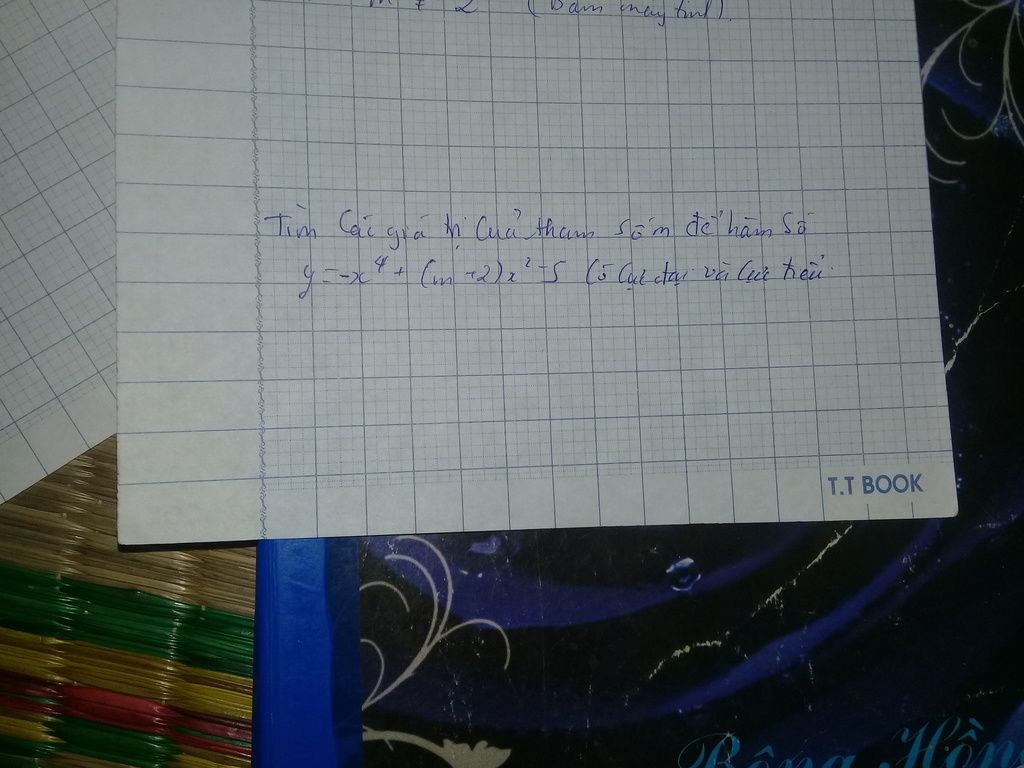 m ≠ 2 (Bấm máy tính).
Tìm các giá trị của tham số m để hàm số
y = -x⁴ + (m+2)x² - 5 Có cực đại và cực tiểu.
T.T BOOK
Bông Hồn